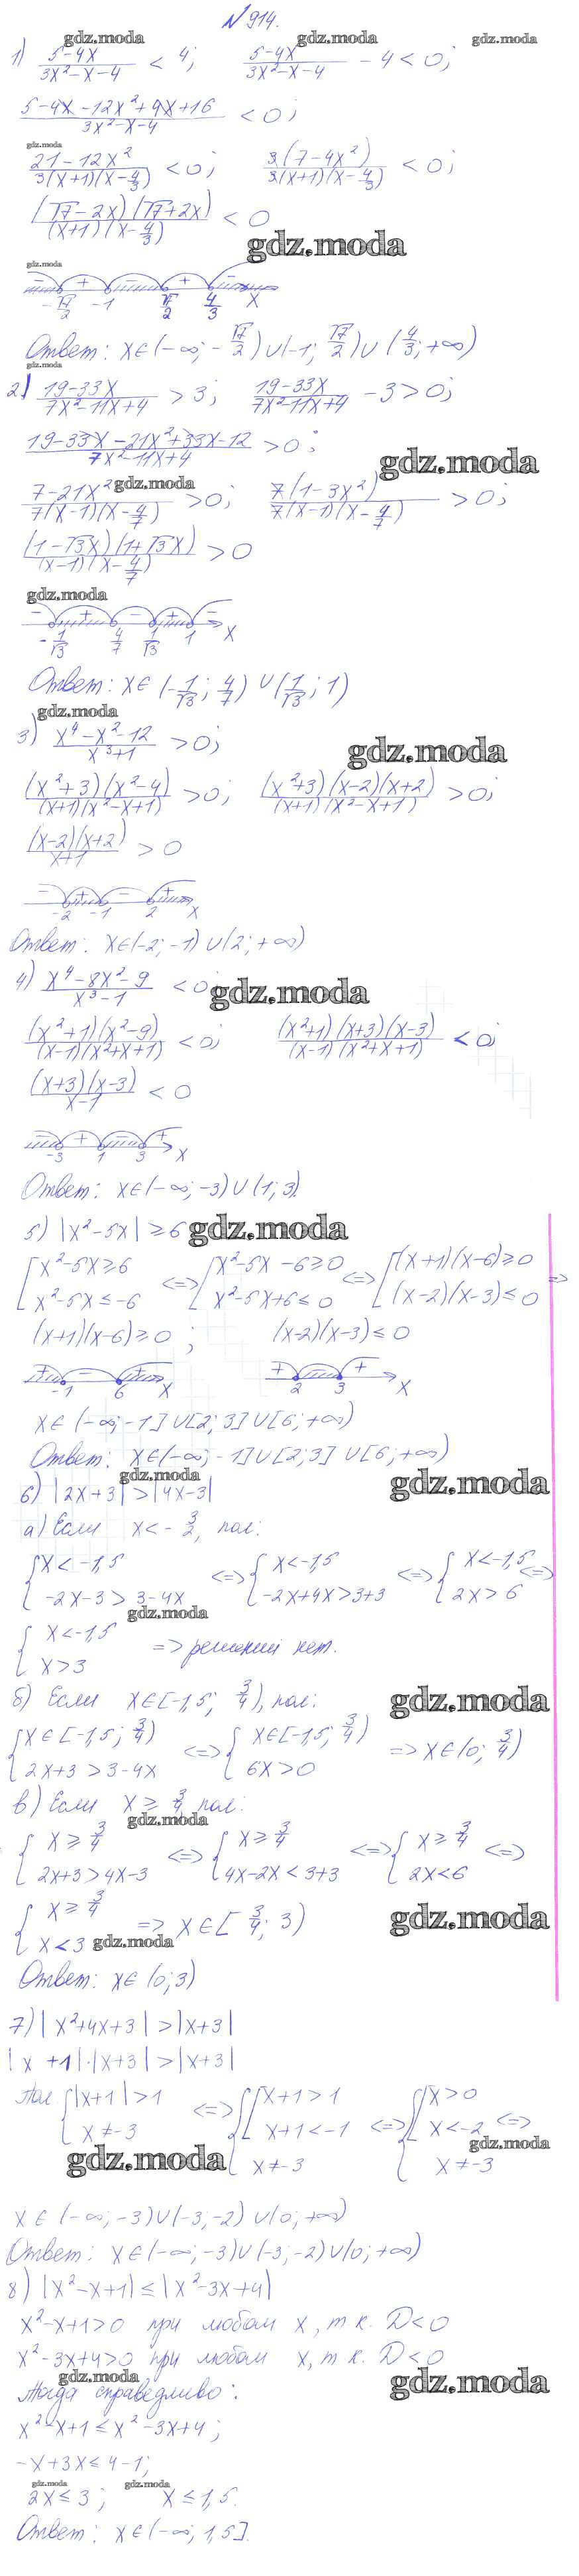 N 914.
gdz.moda gdz.moda gdz.moda
1) (5-4x)/(3x²-x-4) < 4; (5-4x)/(3x²-x-4) - 4 < 0;
(5-4x-12x²+4x+16)/(3x²-x-4) < 0;
gdz.moda
(21-12x²)/(3(x+1)(x-4/3)) < 0; (3(7-4x²))/(3(x+1)(x-4/3)) < 0;
((√7-2x)(√7+2x))/((x+1)(x-4/3)) < 0
gdz.moda
gdz.moda
- + - + -
-√7/2 -1 √7/2 4/3 x
Ответ: x∈(-∞; -√7/2)∪(-1; √7/2)∪(4/3; +∞)
gdz.moda
2) (19-33x)/(7x²-11x+4) > 3; (19-33x)/(7x²-11x+4) - 3 > 0;
(19-33x-21x²+33x-12)/(7x²-11x+4) > 0;
gdz.moda
gdz.moda
(7-21x²)/(7(x-1)(x-4/7)) > 0; (7(1-3x²))/(7(x-1)(x-4/7)) > 0;
((1-√3x)(1+√3x))/((x-1)(x-4/7)) > 0
gdz.moda
- + - + -
-1/√3 4/7 1/√3 1 x
Ответ: x∈(-1/√3; 4/7)∪(1/√3; 1)
gdz.moda
3) (x⁴-x²-12)/(x³+1) > 0;
gdz.moda
((x²+3)(x²-4))/((x+1)(x²-x+1)) > 0; ((x²+3)(x-2)(x+2))/((x+1)(x²-x+1)) > 0;
((x-2)(x+2))/(x+1) > 0
- + - +
-2 -1 2 x
Ответ: x∈(-2; -1)∪(2; +∞)
4) (x⁴-8x²-9)/(x³-1) < 0
gdz.moda
((x²+1)(x²-9))/((x-1)(x²+x+1)) < 0; ((x²+1)(x+3)(x-3))/((x-1)(x²+x+1)) < 0;
((x+3)(x-3))/(x-1) < 0
- + - +
-3 1 3 x
Ответ: x∈(-∞; -3)∪(1; 3).
5) |x²-5x| ≥ 6
gdz.moda
[x²-5x≥6 <=> [x²-5x-6≥0 <=> [(x+1)(x-6)≥0 =>
x²-5x≤-6 x²-5x+6≤0 (x-2)(x-3)≤0
(x+1)(x-6)≥0; (x-2)(x-3)≤0
+ - + + - +
-1 6 x 2 3 x
x∈(-∞; -1]∪[2; 3]∪[6; +∞)
Ответ: x∈(-∞; -1]∪[2; 3]∪[6; +∞)
gdz.moda gdz.moda
6) |2x+3|>|4x-3|
а) Если x<-3/2, пол:
{x<-1,5 <=> {x<-1,5 <=> {x<-1,5 <=>
-2x-3>3-4x -2x+4x>3+3 2x>6
gdz.moda
{x<-1,5 => решений нет.
x>3
б) Если x∈[-1,5; 3/4), пол:
gdz.moda
{x∈[-1,5; 3/4) <=> {x∈[-1,5; 3/4) => x∈(0; 3/4)
2x+3>3-4x 6x>0
в) Если x≥3/4 пол:
gdz.moda
{x≥3/4 <=> {x≥3/4 <=> {x≥3/4 <=>
2x+3>4x-3 4x-2x<3+3 2x<6
{x≥3/4 => x∈[3/4; 3)
x<3
gdz.moda gdz.moda
Ответ: x∈(0; 3)
7) |x²+4x+3|>|x+3|
|x+1|·|x+3|>|x+3|
Пол {|x+1|>1 <=> {[x+1>1 <=> {[x>0 <=>
x≠-3 x+1<-1 x<-2
x≠-3 x≠-3
gdz.moda gdz.moda
x∈(-∞; -3)∪(-3; -2)∪(0; +∞)
Ответ: x∈(-∞; -3)∪(-3; -2)∪(0; +∞)
8) |x²-x+1|≤|x²-3x+4|
x²-x+1>0 при любом x, т.к. D<0
x²-3x+4>0 при любом x, т.к. D<0
gdz.moda gdz.moda
Тогда справедливо:
x²-x+1≤x²-3x+4;
-x+3x≤4-1;
gdz.moda gdz.moda
2x≤3; x≤1,5.
Ответ: x∈(-∞; 1,5].